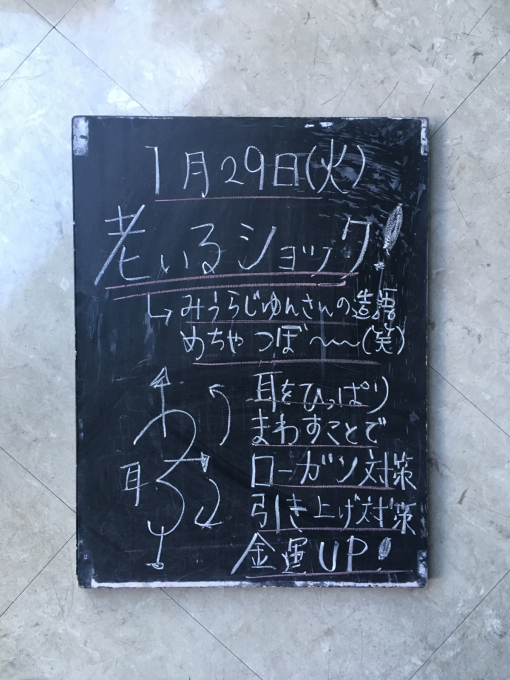 1月29日(火)
老いるショック!
↳みうらじゅんさんの造語
めちゃつぼ〜〜(笑)
耳をひっぱり
まわすことで
耳
ローガン対策
引き上げ対策
金運UP!